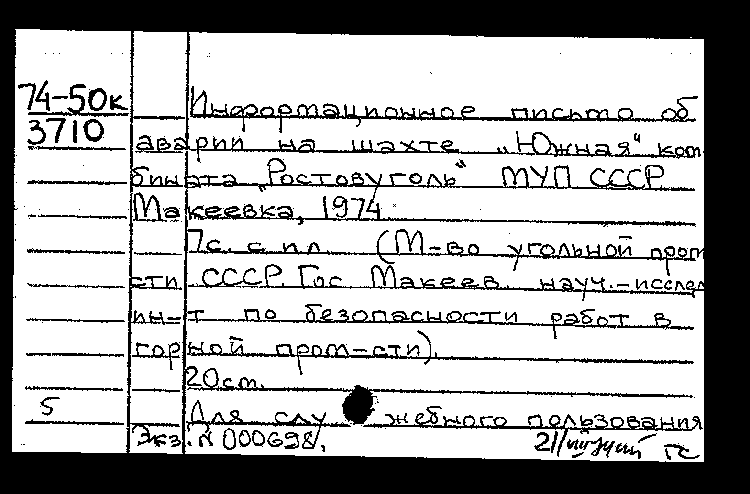 74-50к
3710
Информационное письмо об
аварии на шахте „Южная“ ком
бината „Ростовуголь“ МУП СССР
Макеевка, 1974
7с. с ил (М-во угольной пром
сти СССР. Гос Макеев. науч.-исслед
ин-т по безопасности работ в
горной пром-сти).
20см.
5
Для служебного пользования
Экз. N 000698.